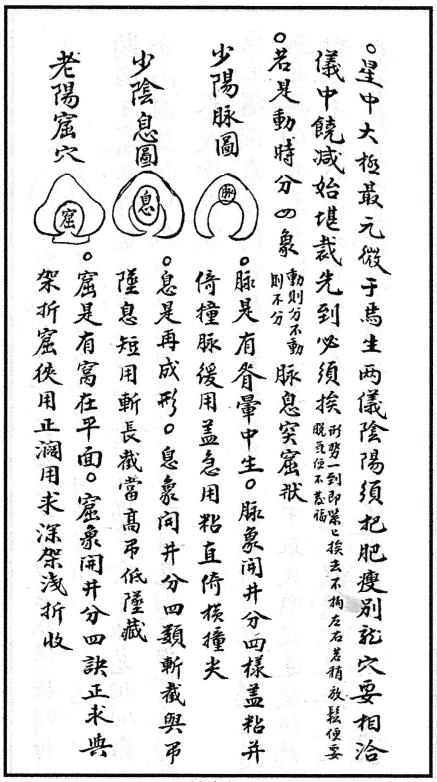 ○星中大極最元微于焉生两儀陰陽須把肥瘦別龍穴要相洽
儀中饒减始堪裁先到必須挨形势一到即緊々挨去不拘左右若稍放鬆便要脱氣便不甚福
○若是動時分四象動則分不動則不分脉息突窟状
少陽脉圖
脉
○脉是有脊暈中生○脉象開井分四樣盖粘并
倚撞脉緩用盖急用粘直倚横撞尖
少陰息圖
息
○息是再成形○息象问井分四類斬截與吊
墜息短用斬長截當高吊低墜藏
老陽窟穴
窟
○窟是有窩在平面○窟象開井分四訣正求與
架折窟狹用正濶用求深架浅折收